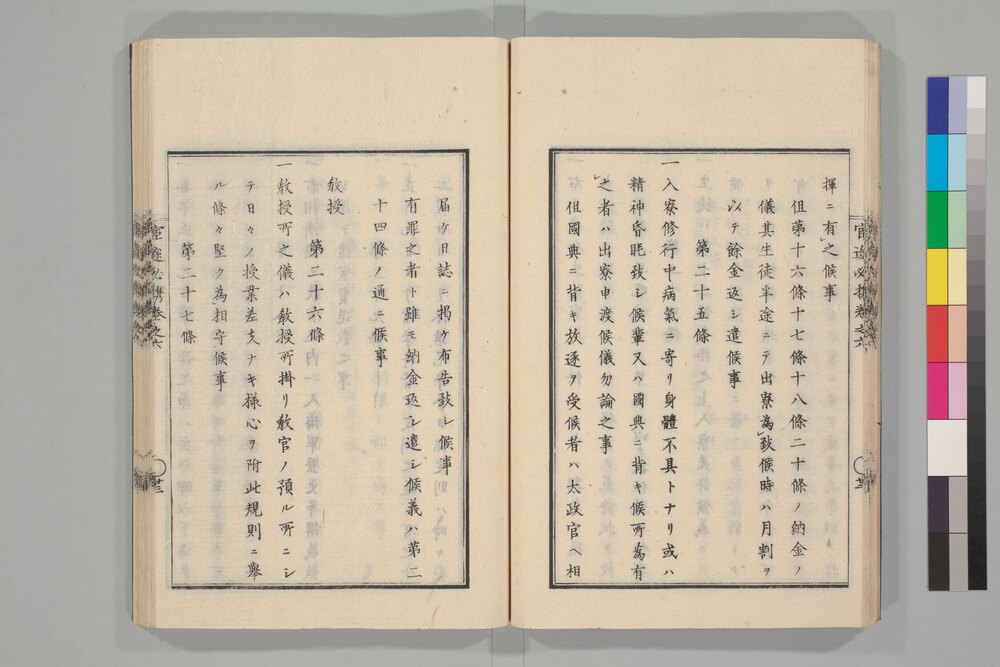 揮ニ有之候事
但第十六條十七條十八條二十條ノ納金ノ
儀其生徒半途ニテ出寮為致候時ハ月割ヲ
以テ餘金返シ遣候事
第二十五條
一入寮修行中病氣ニ寄リ身體不具トナリ或ハ
精神昏眊致シ候輩又ハ國典ニ背キ候所為有
之者ハ出寮申渡候儀勿論之事
但國典ニ背キ放逐ヲ受候者ハ太政官ヘ相
官途必携卷之六
届ケ日誌ニ掲ケ布告致シ候事
有罪之者ト雖モ納金返シ遣シ候義ハ第二
十四條ノ通ニ候事
教授
第二十六條
一教授所之儀ハ教授所掛リ教官ノ預ル所ニシ
テ日々ノ授業差支ナキ樣心ヲ附此規則ニ舉
ル條々堅ク為相守候事
第二十七條
官途必携卷之六